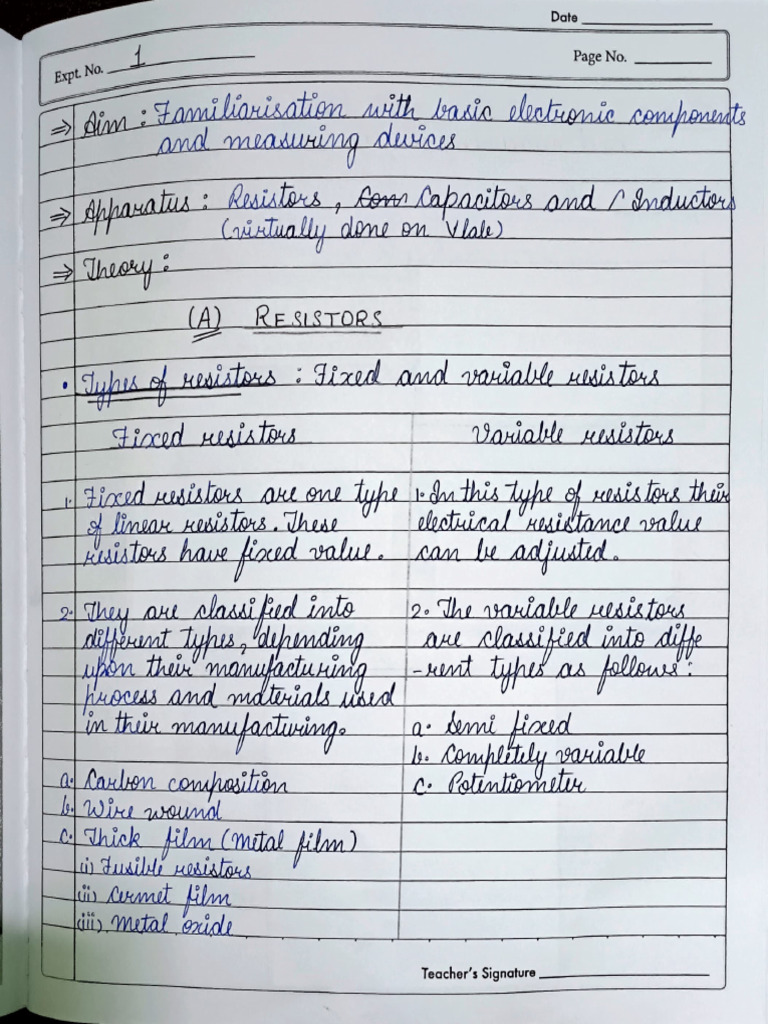 Date
Expt. No. 1
Page No.
⇒ Aim : Familiarisation with basic electronic components
and measuring devices
⇒ Apparatus : Resistors, Com Capacitors and / Inductors
(virtually done on Vlab)
⇒ Theory :
(A) RESISTORS
• Types of resistors : Fixed and variable resistors
Fixed resistors
Variable resistors
1. Fixed resistors are one type
of linear resistors. These
resistors have fixed value.
2. They are classified into
different types, depending
upon their manufacturing
process and materials used
in their manufacturing.
a. Carbon composition
b. Wire wound
c. Thick film (Metal film)
(i) Fusible resistors
(ii) Cermet film
(iii) Metal oxide
1. In this type of resistors their
electrical resistance value
can be adjusted.
2. The variable resistors
are classified into diffe
-rent types as follows:
a. Semi fixed
b. Completely variable
c. Potentiometer
Teacher's Signature